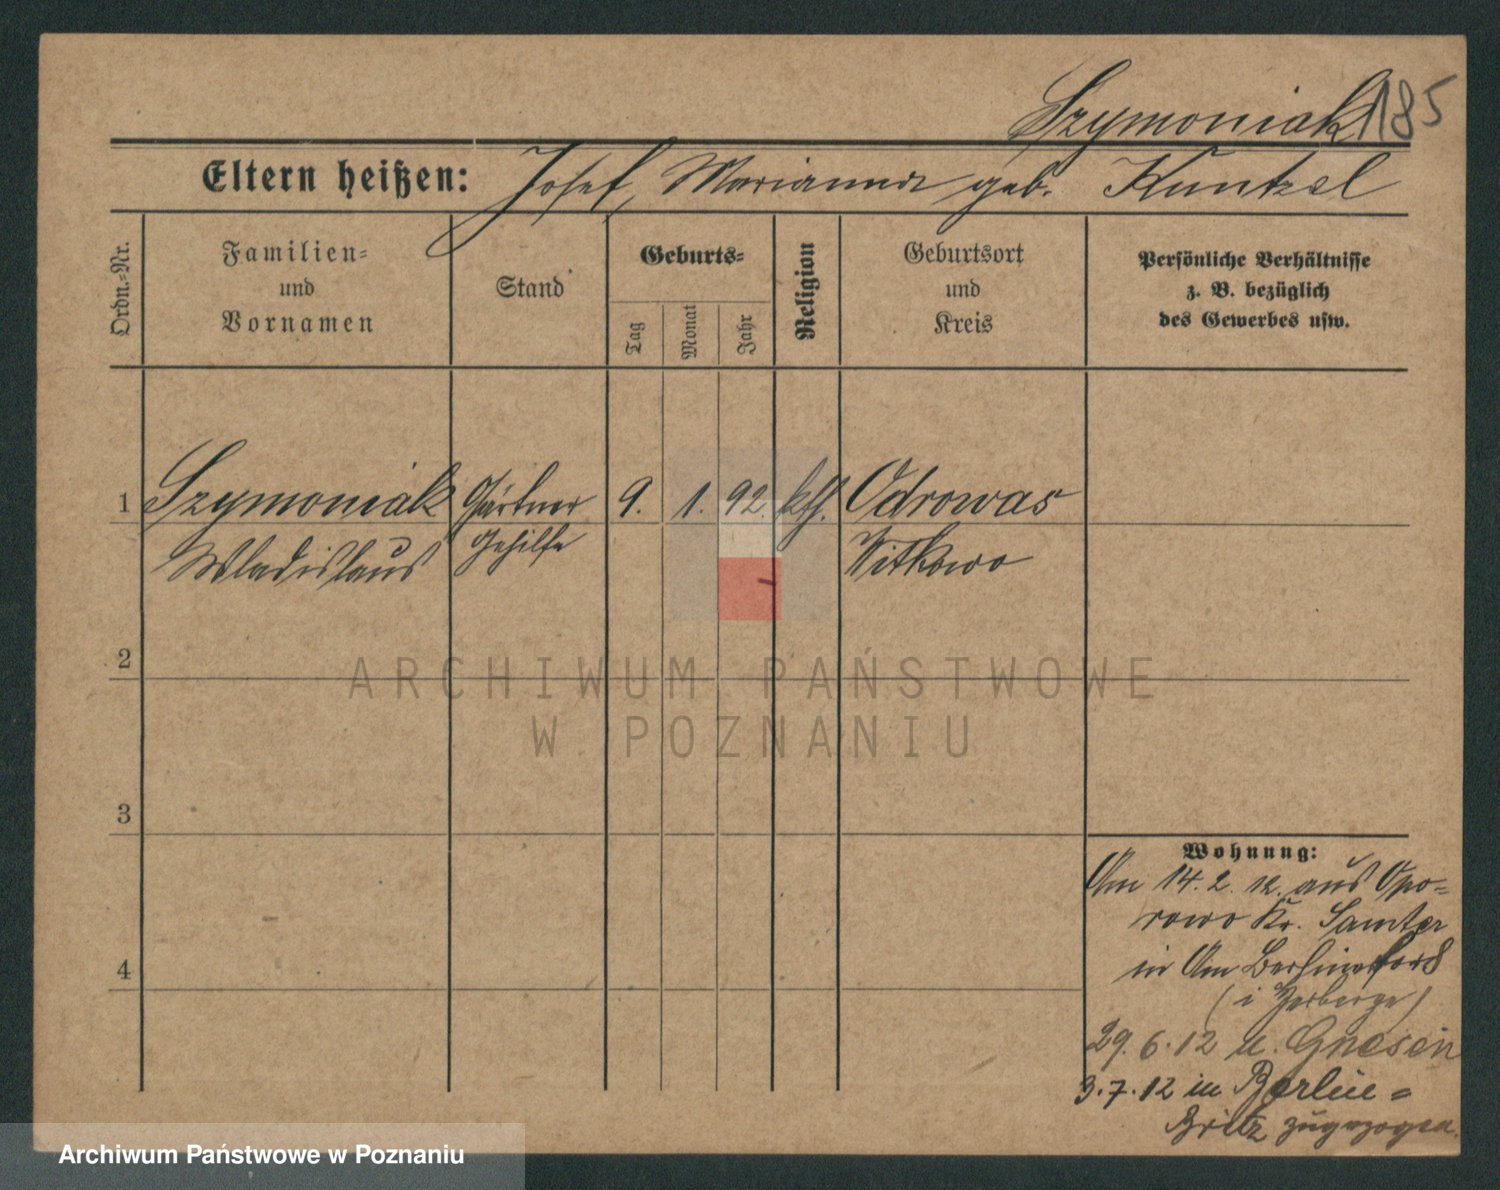 Szymoniak 185
Eltern heißen: Josef, Marianna geb. Kuntzel
Ordn.-Nr.
Familien-
und
Vornamen
Stand
Geburts-
Tag
Monat
Jahr
Religion
Geburtsort
und
Kreis
Persönliche Verhältnisse
z. B. bezüglich
des Gewerbes usw.
1 Szymoniak Gärtner 9. 1. 92. kth. Odrowas
Wladislaus Gehilfe Witkowo
2
ARCHIWUM PAŃSTWOWE
W POZNANIU
3
4
Wohnung:
Am 14.2.12. aus Opo-
rowo Kr. Samter
in Am Berliner
29.6.12 n. Gnesen
3.7.12 in Berlin-
Britz zugezogen.
Archiwum Państwowe w Poznaniu